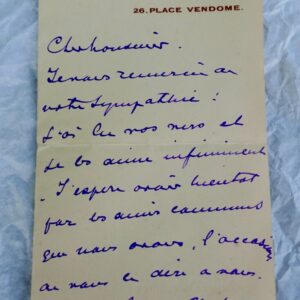 26, PLACE VENDOME.
Cher monsieur.
Je vous remercie de
votre sympathie !
J'ai lu vos vers et
je les aime infiniment
J'espère avoir bientôt
par les amis communs
que nous avons, l'occasion
de vous le dire à vous.